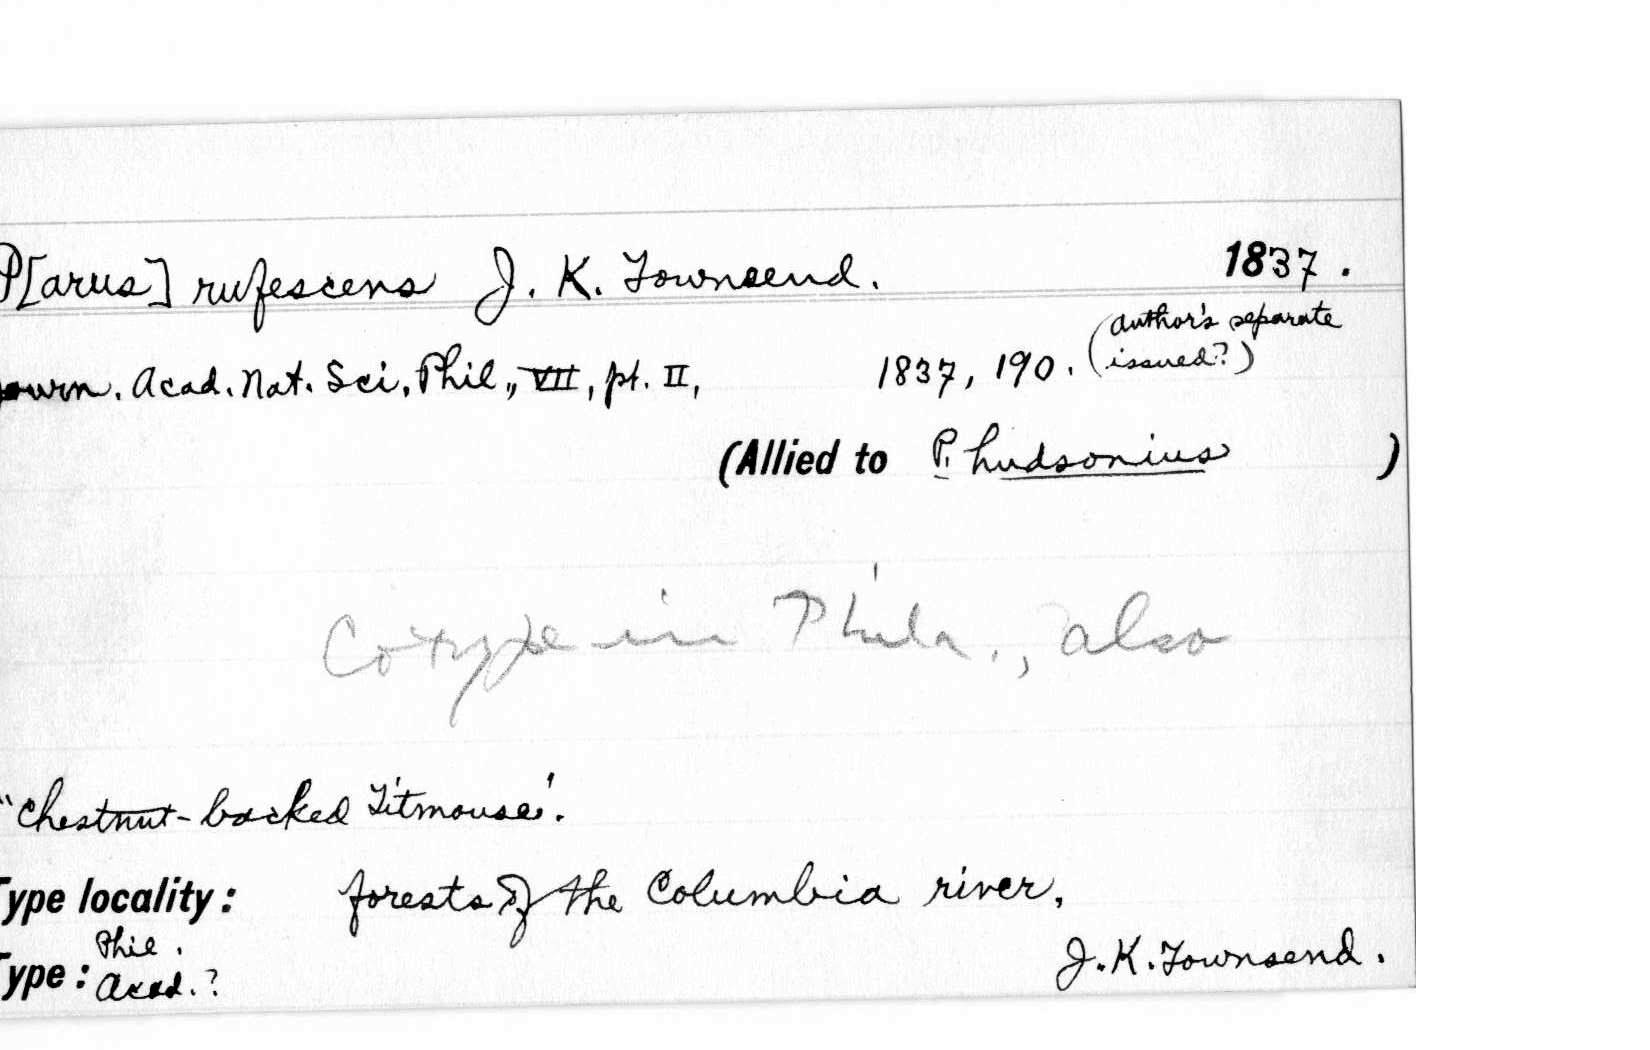 P[arus] rufescens J. K. Townsend. 1837.
ourn. Acad. Nat. Sci. Phil., VII, pt. II, 1837, 190. (author's separate
issued?)
(Allied to P. hudsonius )
Cotype in Phila., also
"Chestnut-backed Titmouse'.
Type locality: forests of the Columbia river,
Phil.
Type: Acad.? J.K. Townsend.